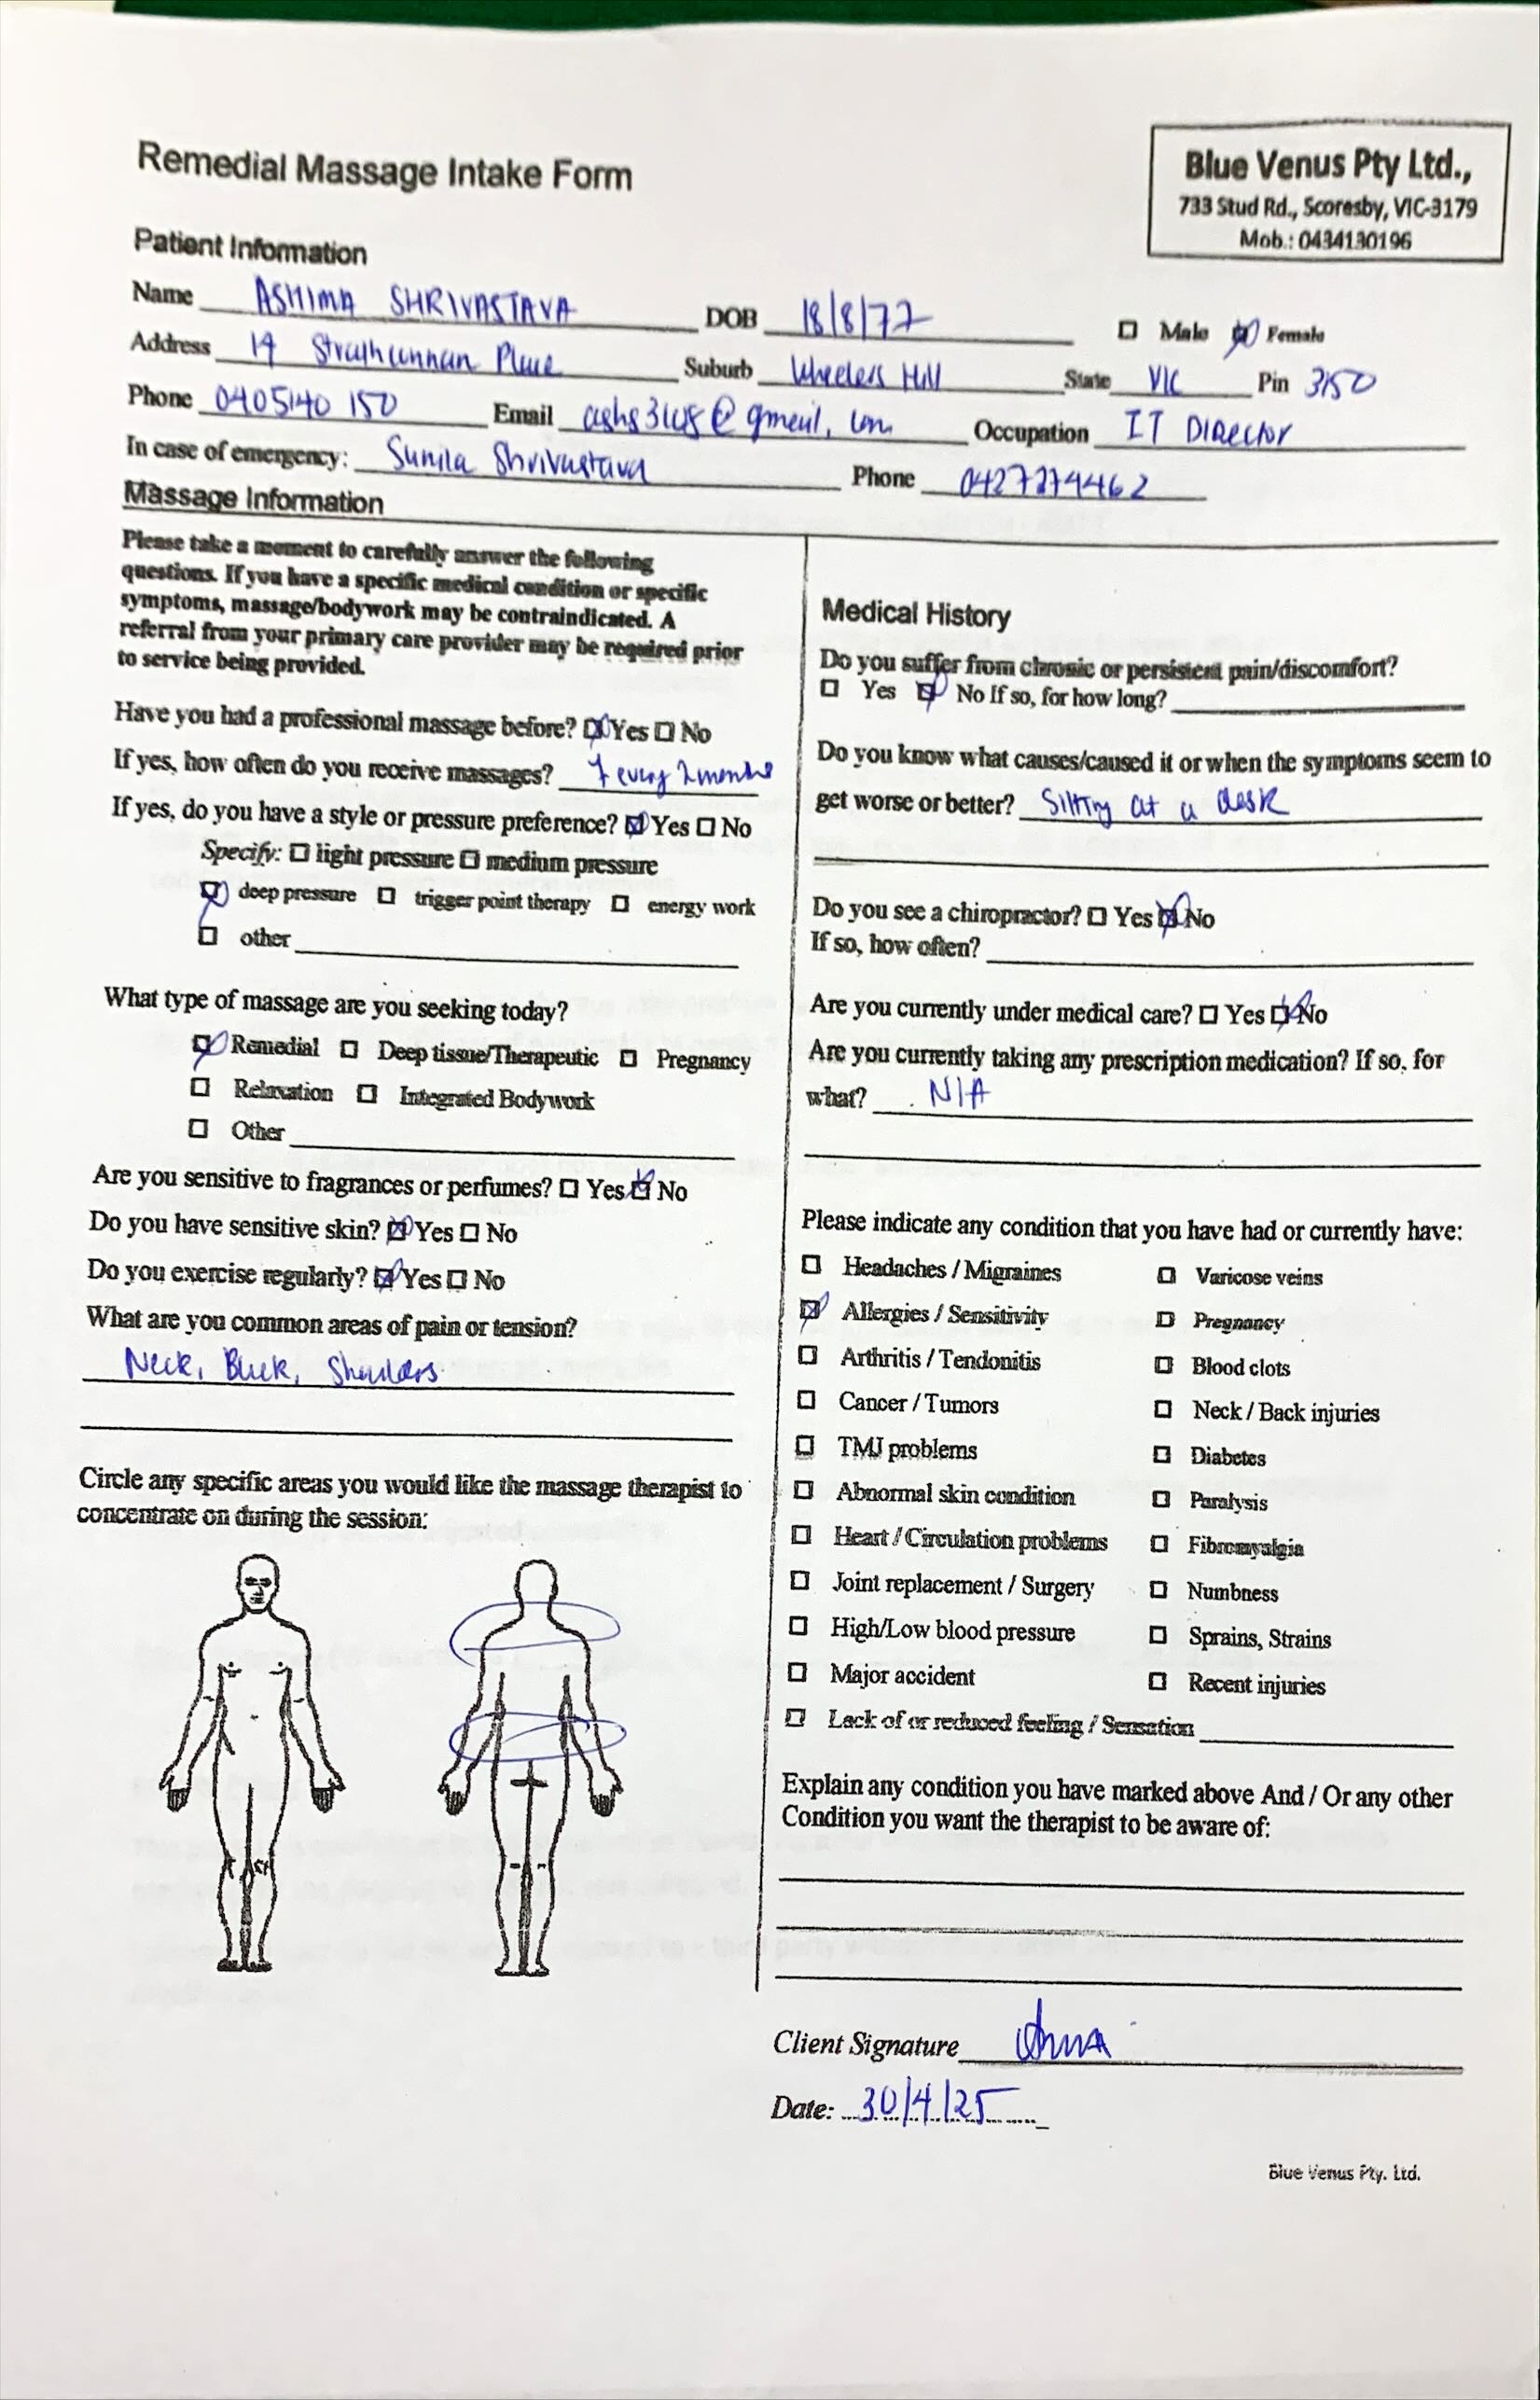 Remedial Massage Intake Form
Blue Venus Pty Ltd.,
733 Stud Rd., Scoresby, VIC-3179
Mob.: 0434130196
Patient Information
Name ASHIMA SHRIVASTAVA DOB 18/8/77 Male Female
Address 14 Place Suburb Wheelers Hill State VIC Pin 3150
Phone 0405140 150 Email @gmail.com Occupation IT Director
In case of emergency: Sunila Shrivastava Phone 0427274462
Massage Information
Please take a moment to carefully answer the following
questions. If you have a specific medical condition or specific
symptoms, massage/bodywork may be contraindicated. A
referral from your primary care provider may be required prior
to service being provided.
Have you had a professional massage before? Yes No
If yes, how often do you receive massages? every 2 months
If yes, do you have a style or pressure preference? Yes No
Specify: light pressure medium pressure
deep pressure trigger point therapy energy work
other
What type of massage are you seeking today?
Remedial Deep tissue/Therapeutic Pregnancy
Relaxation Integrated Bodywork
Other
Are you sensitive to fragrances or perfumes? Yes No
Do you have sensitive skin? Yes No
Do you exercise regularly? Yes No
What are you common areas of pain or tension?
Neck, Back, Shoulders
Circle any specific areas you would like the massage therapist to
concentrate on during the session:
Medical History
Do you suffer from chronic or persistent pain/discomfort?
Yes No If so, for how long?
Do you know what causes/caused it or when the symptoms seem to
get worse or better? Sitting at a desk
Do you see a chiropractor? Yes No
If so, how often?
Are you currently under medical care? Yes No
Are you currently taking any prescription medication? If so, for
what? N/A
Please indicate any condition that you have had or currently have:
Headaches / Migraines Varicose veins
Allergies / Sensitivity Pregnancy
Arthritis / Tendonitis Blood clots
Cancer / Tumors Neck / Back injuries
TMJ problems Diabetes
Abnormal skin condition Paralysis
Heart / Circulation problems Fibromyalgia
Joint replacement / Surgery Numbness
High/Low blood pressure Sprains, Strains
Major accident Recent injuries
Lack of or reduced feeling / Sensation
Explain any condition you have marked above And / Or any other
Condition you want the therapist to be aware of:
Client Signature
Date: 30/4/25
Blue Venus Pty. Ltd.